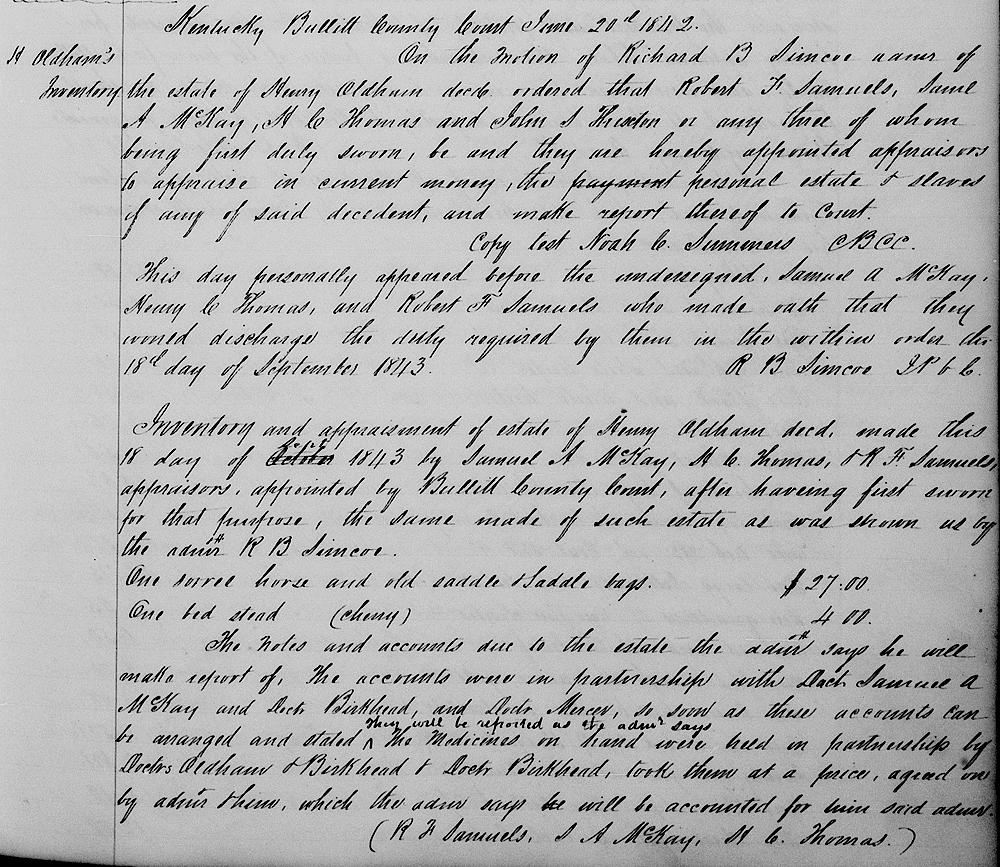 Kentucky Bullitt County Court June 20th 1842.
H Oldham's
Inventory
On the motion of Richard B Simcoe admr of
the estate of Henry Oldham decd. ordered that Robert F. Samuels, Saml
A McKay, H C Thomas and John S Thixton or any three of whom
being first duly sworn, be and they are hereby appointed appraisors
to appraise in current money, the payment personal estate & slaves
if any of said decedent, and make report thereof to Court.
Copy test Noah C. Summers CBCC.
This day personally appeared before the undersegned, Samuel A McKay,
Henry C Thomas, and Robert F Samuels who made oath that they
would discharge the duty required by them in the within order this
18th day of September 1843. R B Simcoe JP b C.
Inventory and appraisment of estate of Henry Oldham decd, made this
18 day of October Sept 1843 by Samuel A McKay, H C. Thomas, & R F. Samuels,
appraisors, appointed by Bullitt County Court, after haveing first sworn
for that purpose, the same made of such estate as was shown us by
the admr R B Simcoe.
One sorrel horse and old saddle & Saddle bags. $27.00.
One bed stead (cherry) 4 00.
The notes and accounts due to the estate the admr says he will
make report of, The accounts were in partnership with Doct Samuel A
McKay and Doctr Birkhead, and Doctr Mercer, so soon as these accounts can
they will be reported as the admr says
be arranged and stated ^ The Medicines on hand were held in partnership by
Doctrs Oldham & Birkhead & Doctr Birkhead, took them at a price, agreed on
by admr & him, which the admr says he will be accounted for said admr.
(R F Samuels, S A McKay, H C. Thomas.)